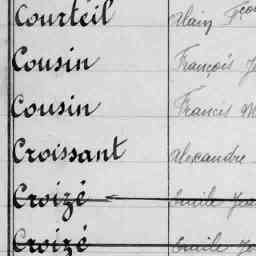 Courteil Alain Fçois
Cousin François J
Cousin Francis M
Croissant Alexandre
Croizé Emile Jea
Croizé Emile Je